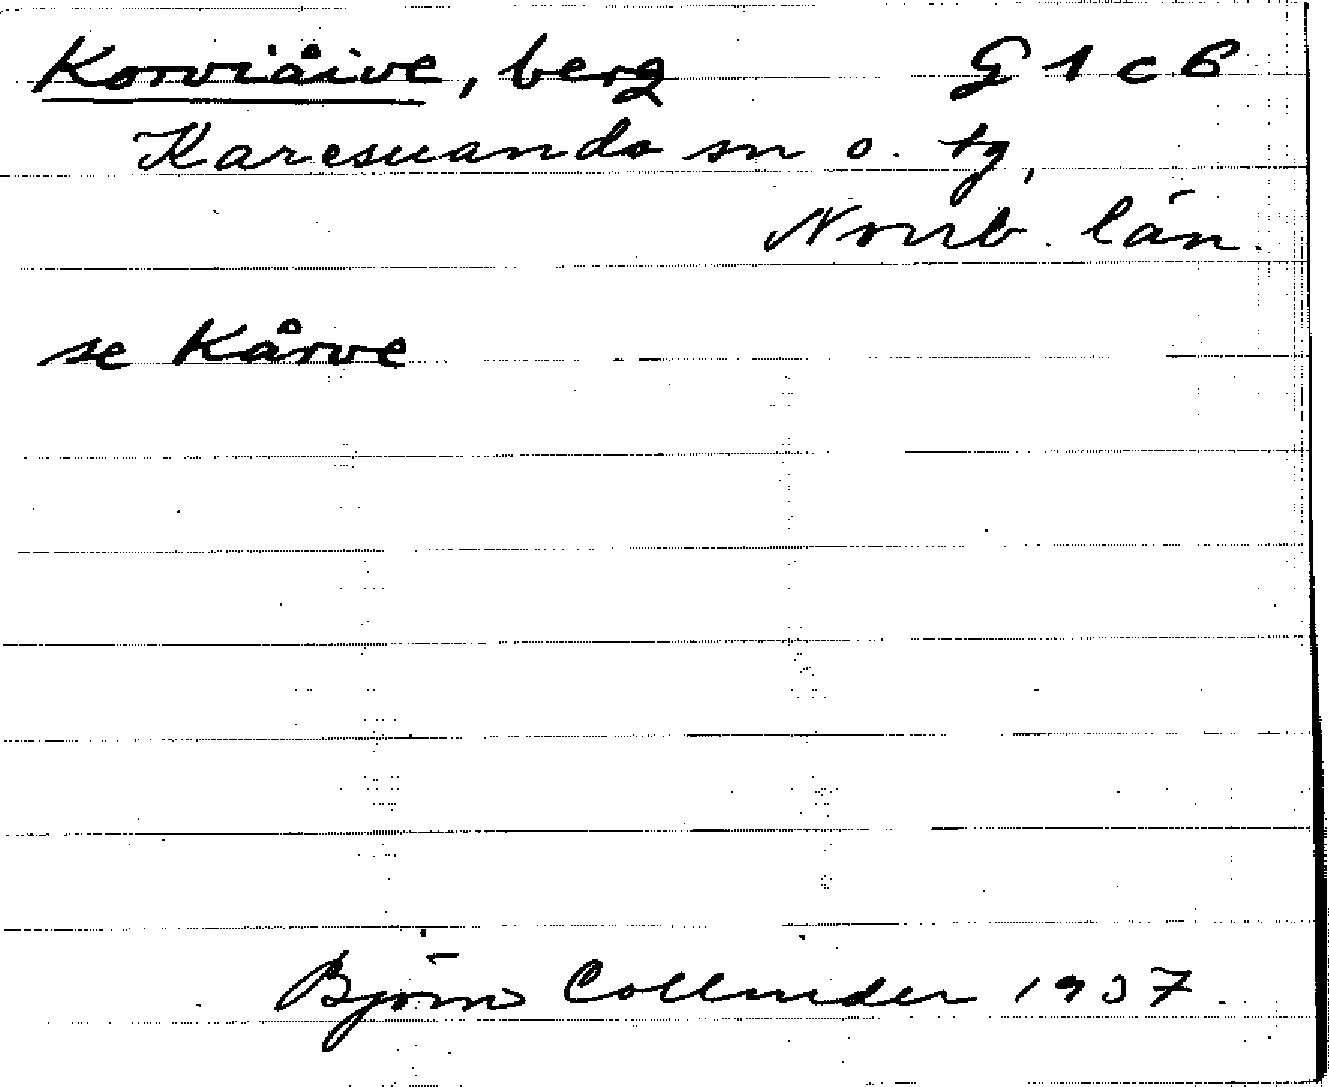 Korviåive, berg G 1 c B
Karesuando sn o. tg,
Norrb. län.
se Kårve
Björn Collinder 1937